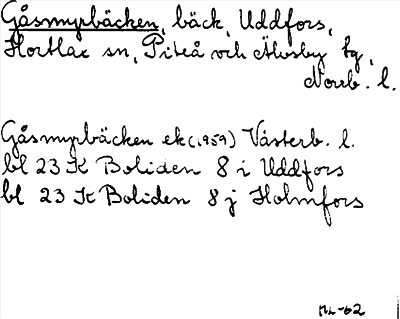 Gåsmyrbäcken, bäck, Uddfors,
Hortlax sn, Piteå och Älvsby tg,
Norrb. l.
Gåsmyrbäcken ek (1959) Västerb. l.
bl 23 K Boliden 8 i Uddfors
bl 23 K Boliden 8 j Holmfors
-62